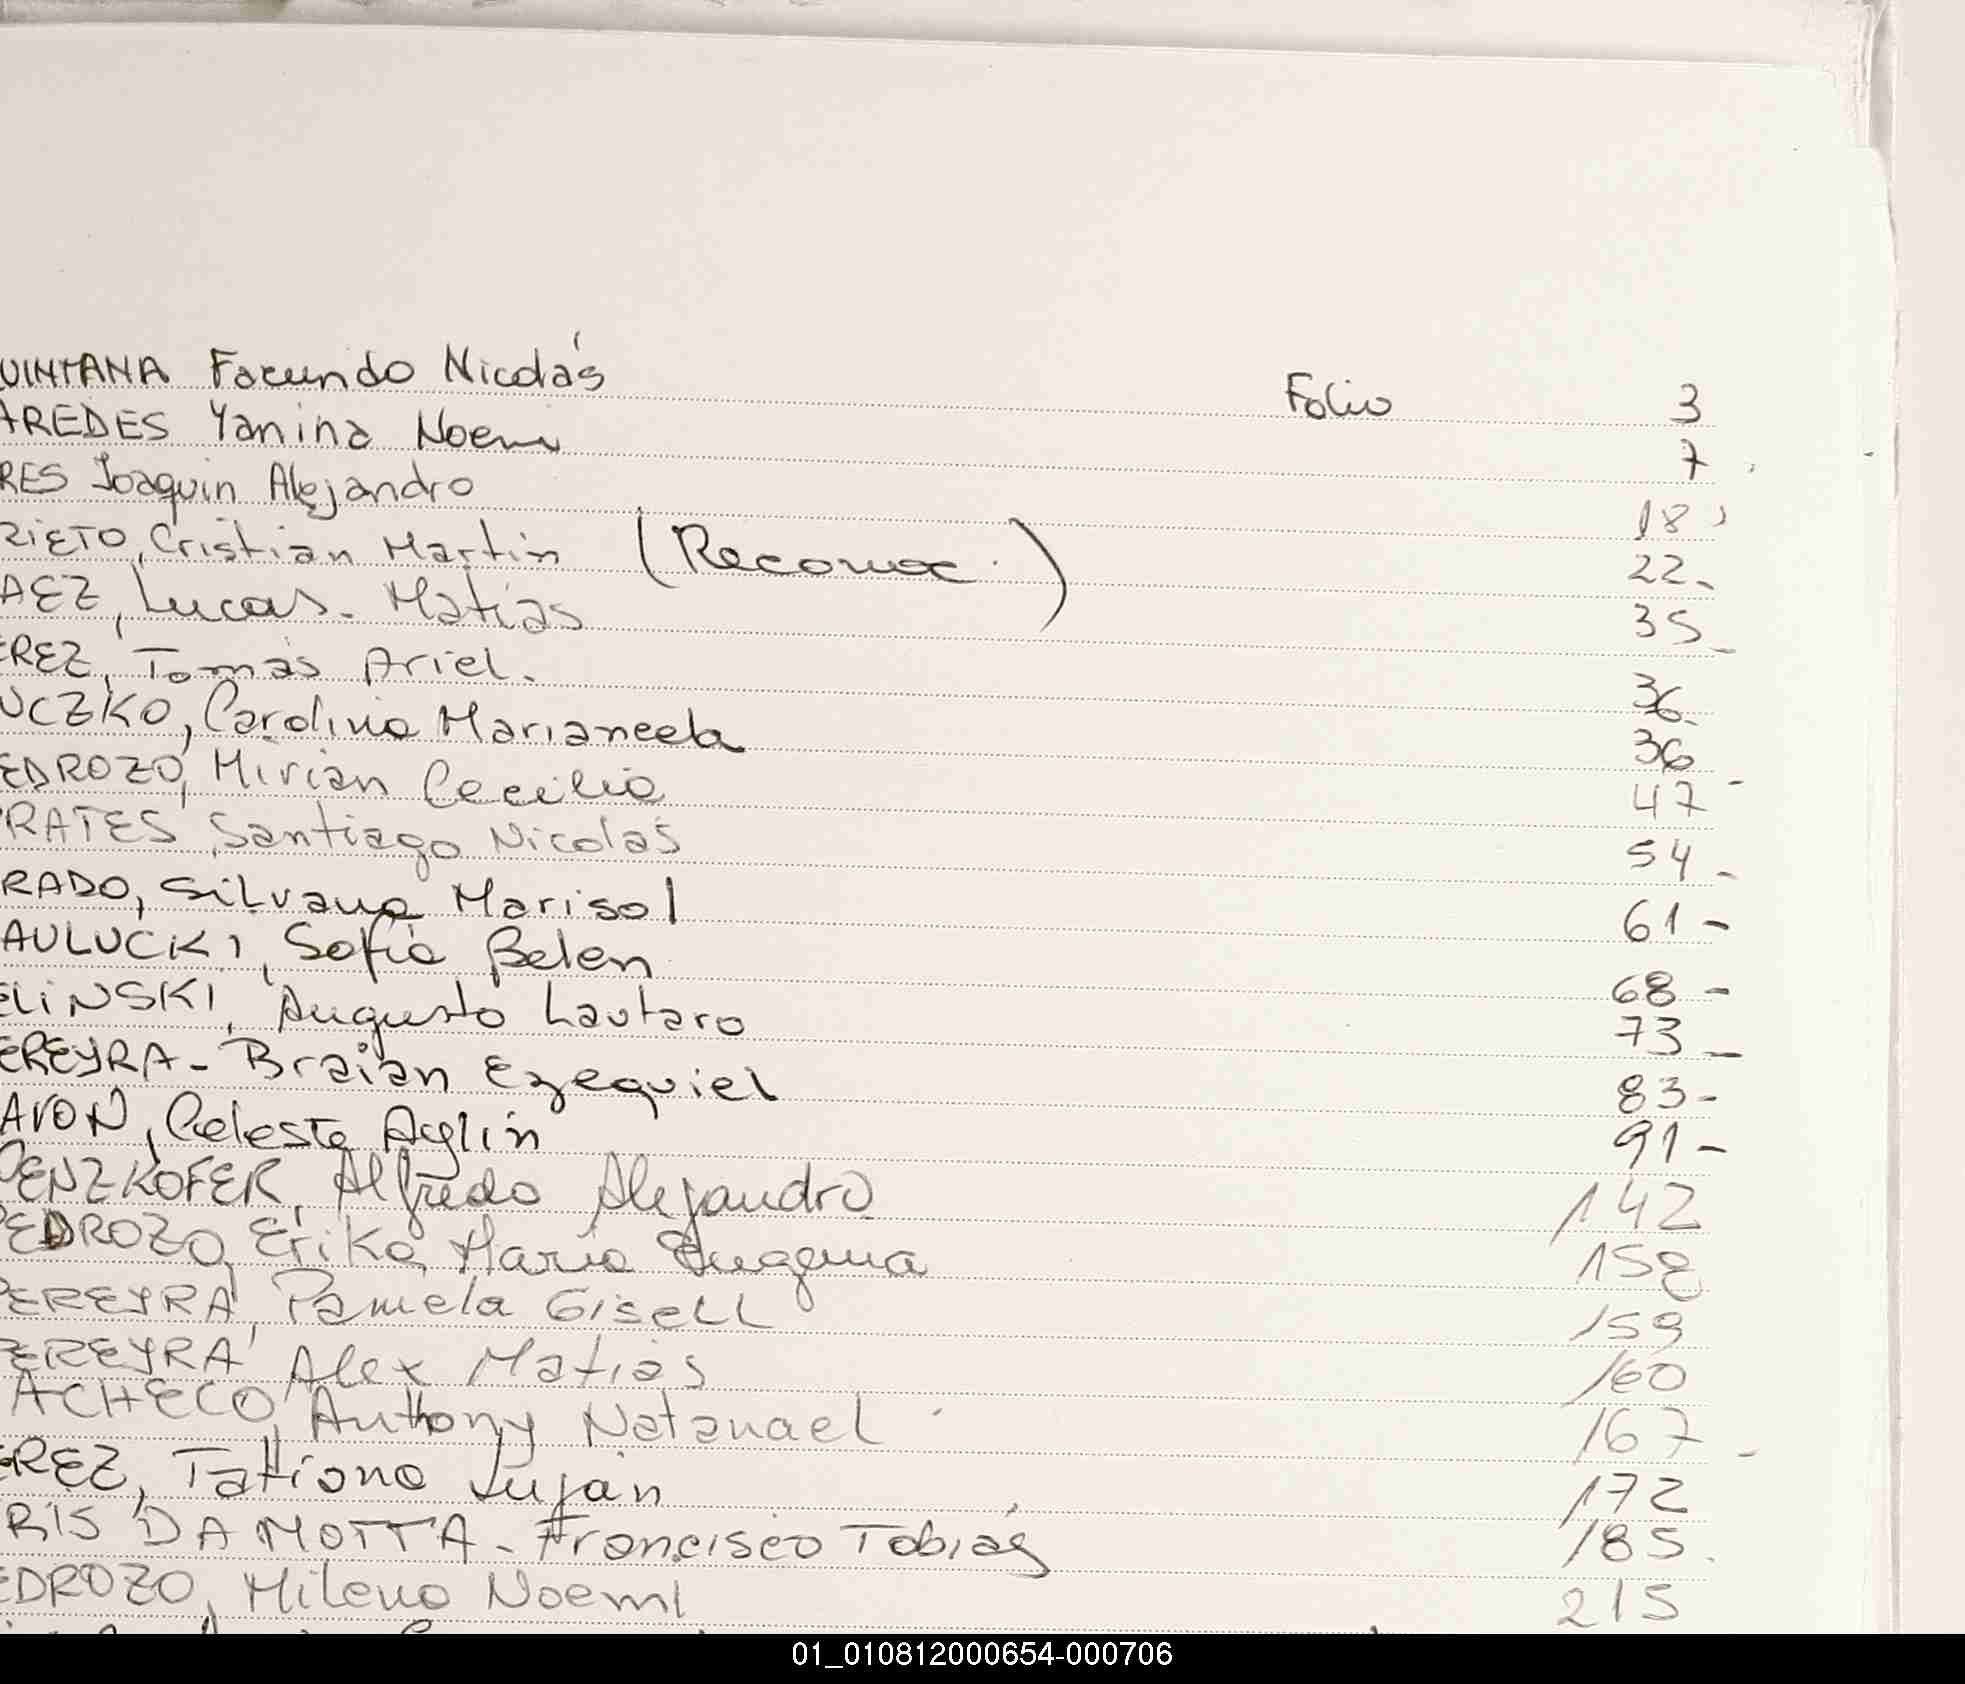 UINTANA Facundo Nicolás Folio 3
AREDES Yanina Noemi 7
RES Joaquin Alejandro 18
RIETO, Cristian Martin (Reconoc.) 22-
AEZ, Lucas. Matias 35-
EREZ, Tomás Ariel. 36-
UCZKO, Carolina Marianela 36
EDROZO, Mirian Cecilia 47-
RATES, Santiago Nicolás 54-
RADO, Silvana Marisol 61-
AULUCKI, Sofia Belen 68-
ELINSKI, Augusto Lautaro 73-
EREYRA- Braian Ezequiel 83-
AVON, Celeste Aylin 91-
PENZKOFER, Alfredo Alejandro 142
PEDROZO, Erika Maria Eugenia 158
PEREYRA, Pamela Gisell 159
PEREYRA, Alex Matias 160
ACHECO, Anthony Natanael 167-
EREZ, Tatiana Luján 172
RIS DA MOTTA- Francisco Tobiás 185.
EDROZO, Milena Noemi 215
01_010812000654-000706